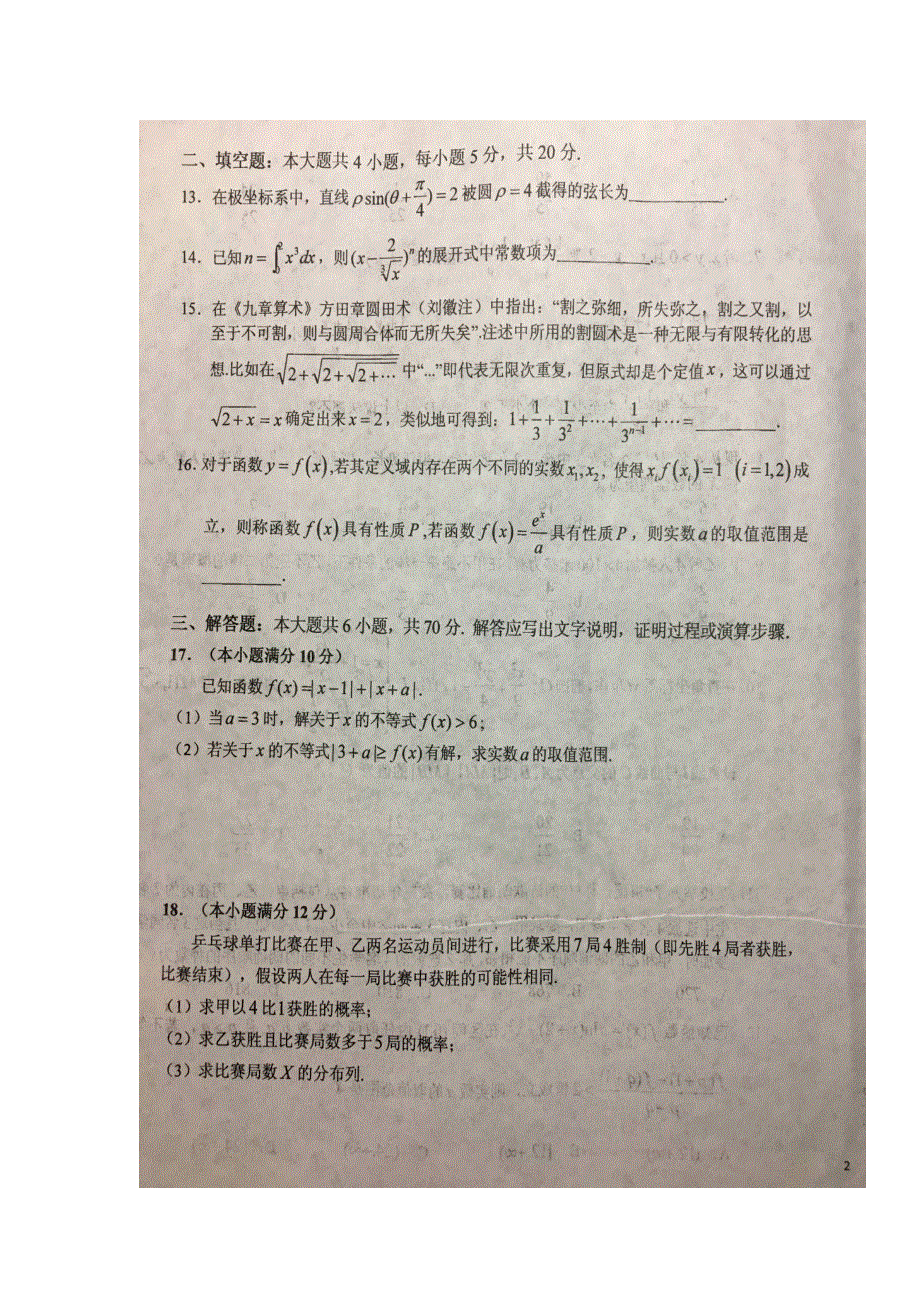 二、填空题：本大题共4小题，每小题5分，共20分.
13．在极坐标系中，直线ρsin(θ+π/4)=2被圆ρ=4截得的弦长为__________.
14．已知n=∫₀²x³dx，则(x−2/∛x)ⁿ的展开式中常数项为__________.
15．在《九章算术》方田章圆田术（刘徽注）中指出：“割之弥细，所失弥之，割之又割，以
至于不可割，则与圆周合体而无所失矣”.注述中所用的割圆术是一种无限与有限转化的思
想.比如在√(2+√(2+√(2+…)))中“...”即代表无限次重复，但原式却是个定值x，这可以通过
√(2+x)=x确定出来x=2，类似地可得到：1+1/3+1/3²+⋯+1/3ⁿ⁻¹+⋯=__________.
16.对于函数y=f(x),若其定义域内存在两个不同的实数x₁,x₂，使得xᵢf(xᵢ)=1 (i=1,2)成
立，则称函数f(x)具有性质P,若函数f(x)=eˣ/a具有性质P，则实数a的取值范围是
__________.
三、解答题：本大题共6小题，共70分. 解答应写出文字说明，证明过程或演算步骤.
17．（本小题满分10分）
已知函数f(x)=|x−1|+|x+a|.
（1）当a=3时，解关于x的不等式f(x)>6；
（2）若关于x的不等式|3+a|≥f(x)有解，求实数a的取值范围.
18．（本小题满分12分）
乒乓球单打比赛在甲、乙两名运动员间进行，比赛采用7局4胜制（即先胜4局者获胜，
比赛结束），假设两人在每一局比赛中获胜的可能性相同.
（1）求甲以4比1获胜的概率；
（2）求乙获胜且比赛局数多于5局的概率；
（3）求比赛局数X的分布列.
2